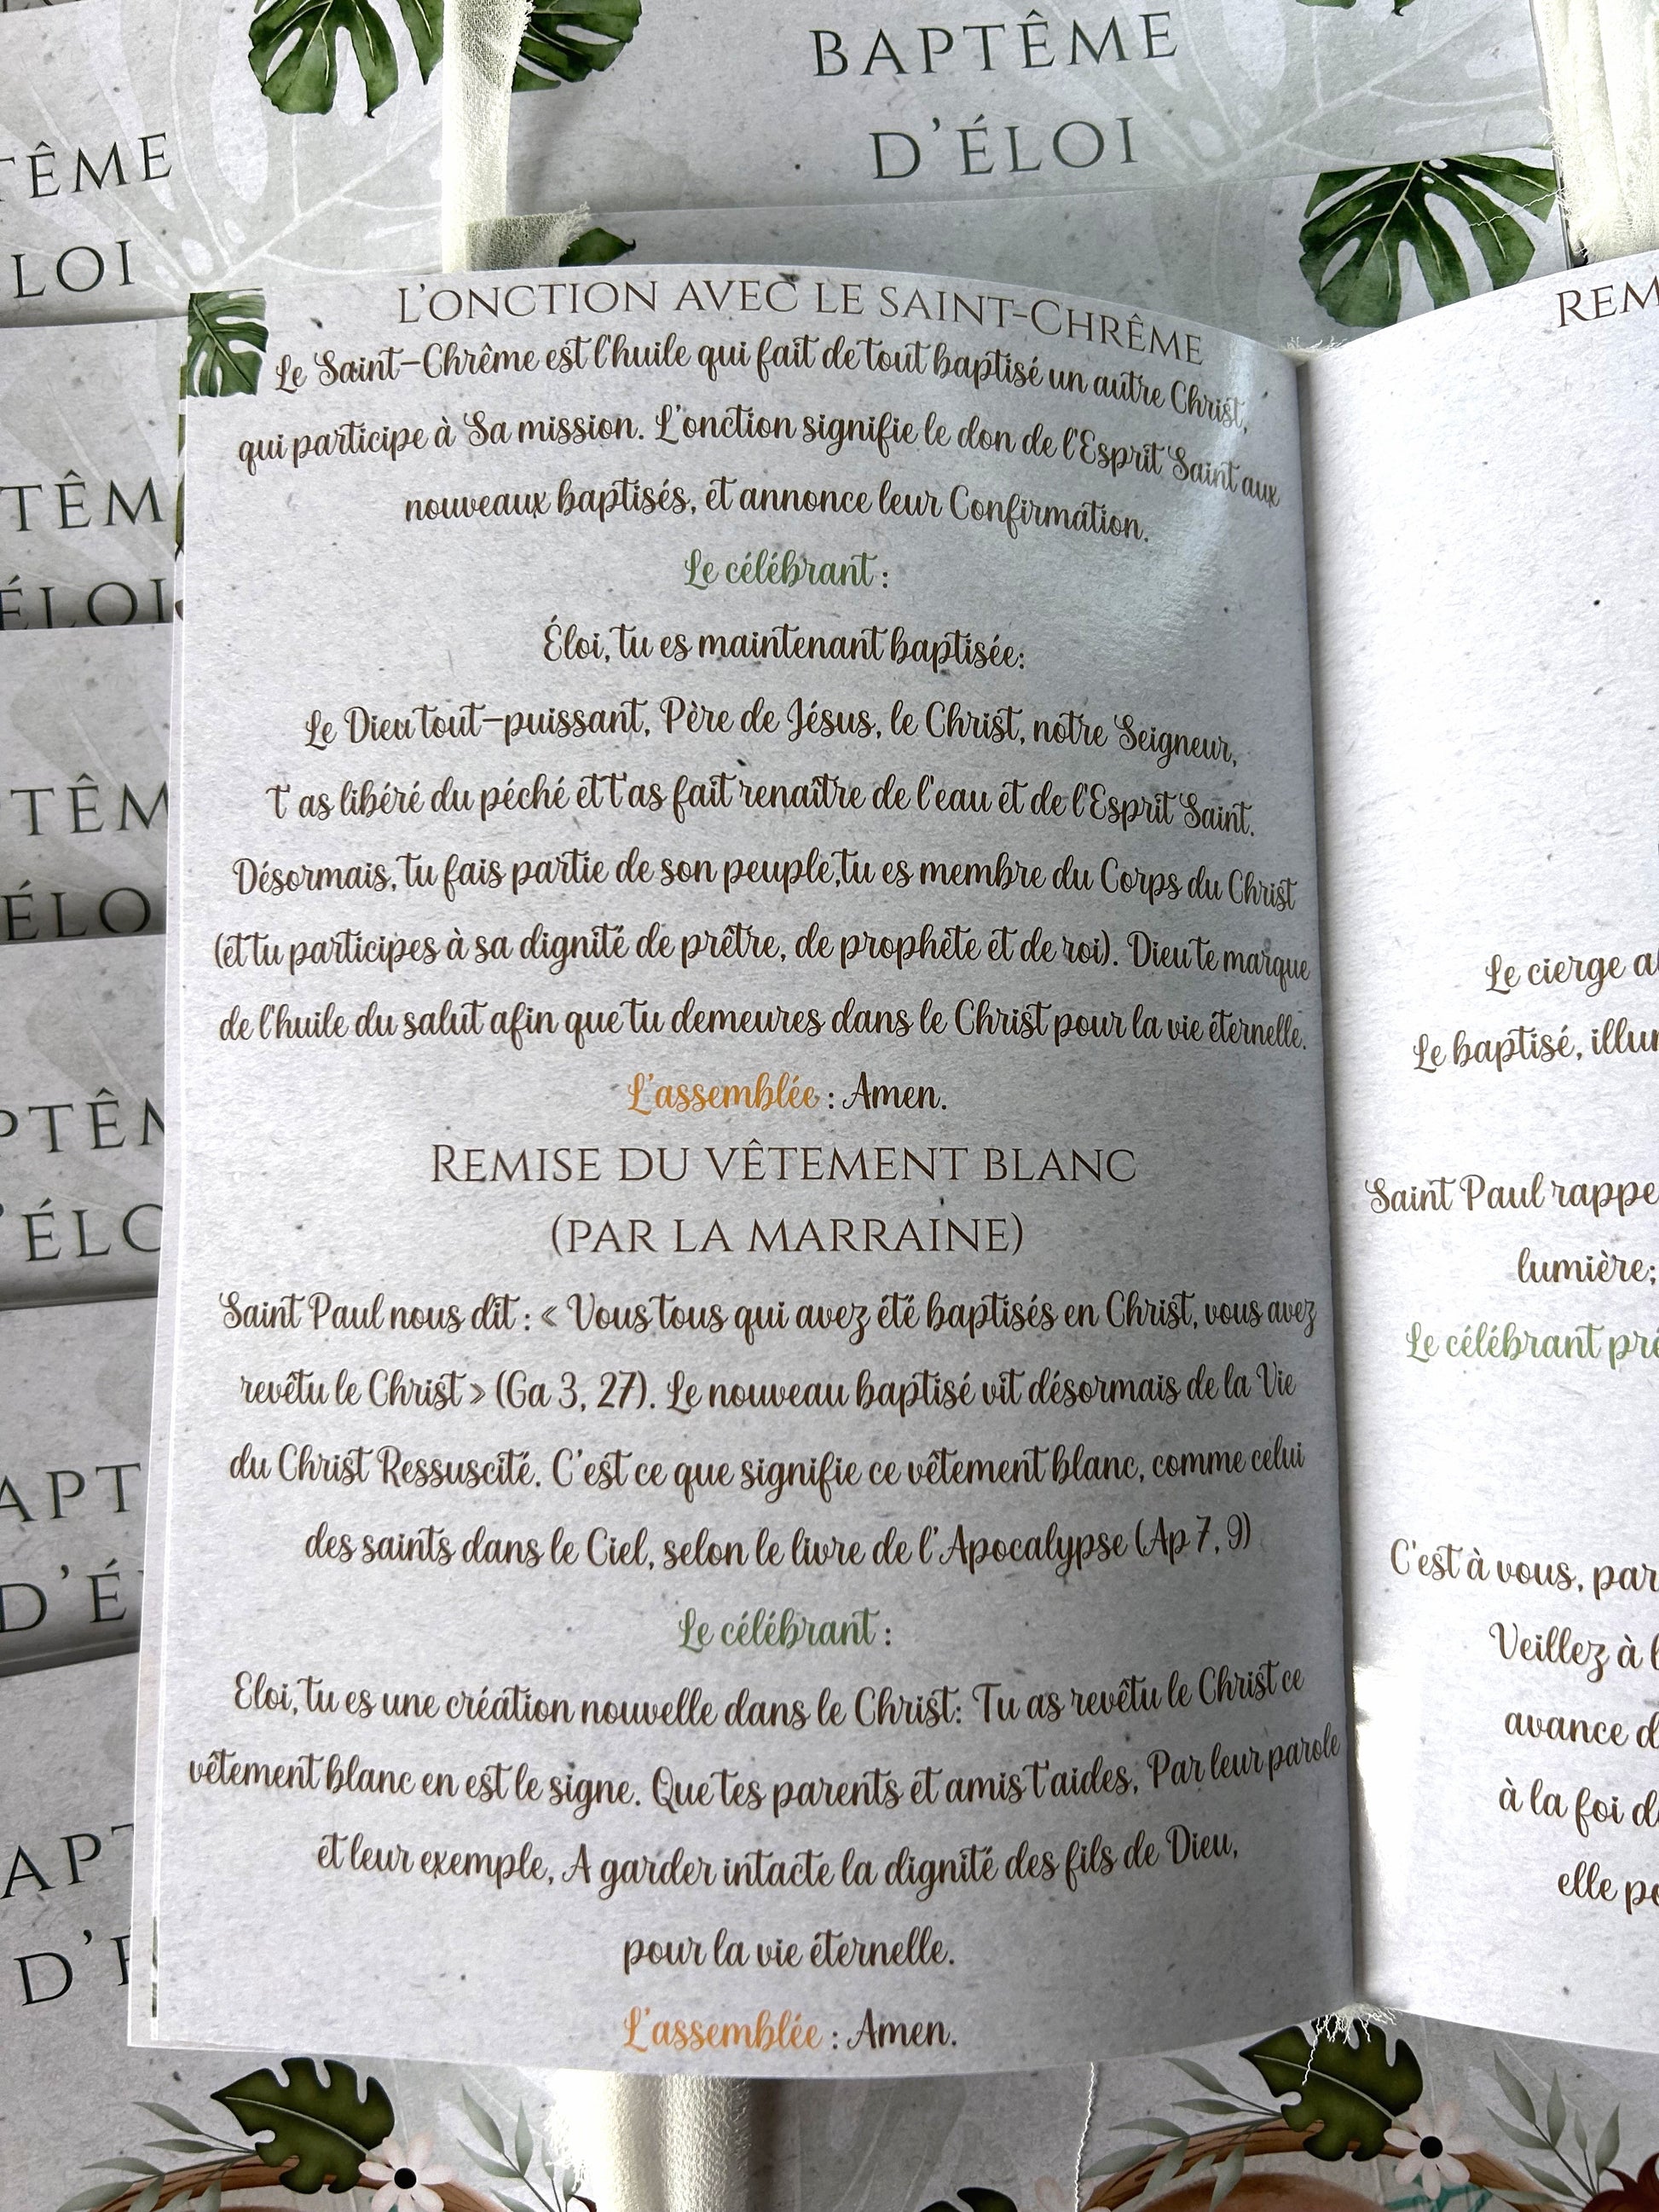 BAPTÊME
D'ÉLOI
TÊME
LOI
TÊM
ÉLOI
TÊM
ÉLO
PTÊM
'ÉLO
APT
D'É
APT
D'É
L'ONCTION AVEC LE SAINT-CHRÊME
Le Saint-Chrême est l'huile qui fait de tout baptisé un autre Christ,
qui participe à Sa mission. L'onction signifie le don de l'Esprit Saint aux
nouveaux baptisés, et annonce leur Confirmation.
Le célébrant :
Éloi, tu es maintenant baptisée:
Le Dieu tout-puissant, Père de Jésus, le Christ, notre Seigneur,
t'as libéré du péché et t'as fait renaître de l'eau et de l'Esprit Saint.
Désormais, tu fais partie de son peuple,tu es membre du Corps du Christ
(et tu participes à sa dignité de prêtre, de prophète et de roi). Dieu te marque
de l'huile du salut afin que tu demeures dans le Christ pour la vie éternelle.
L'assemblée : Amen.
REMISE DU VÊTEMENT BLANC
(PAR LA MARRAINE)
Saint Paul nous dit : « Vous tous qui avez été baptisés en Christ, vous avez
revêtu le Christ » (Ga 3, 27). Le nouveau baptisé vit désormais de la Vie
du Christ Ressuscité. C'est ce que signifie ce vêtement blanc, comme celui
des saints dans le Ciel, selon le livre de l'Apocalypse (Ap 7, 9)
Le célébrant :
Eloi, tu es une création nouvelle dans le Christ: Tu as revêtu le Christ ce
vêtement blanc en est le signe. Que tes parents et amis t'aides, Par leur parole
et leur exemple, A garder intacte la dignité des fils de Dieu,
pour la vie éternelle.
L'assemblée : Amen.
REM
Le cierge al
Le baptisé, illum
Saint Paul rappe
lumière;
Le célébrant pré
C'est à vous, par
Veillez à l
avance d
à la foi d
elle po